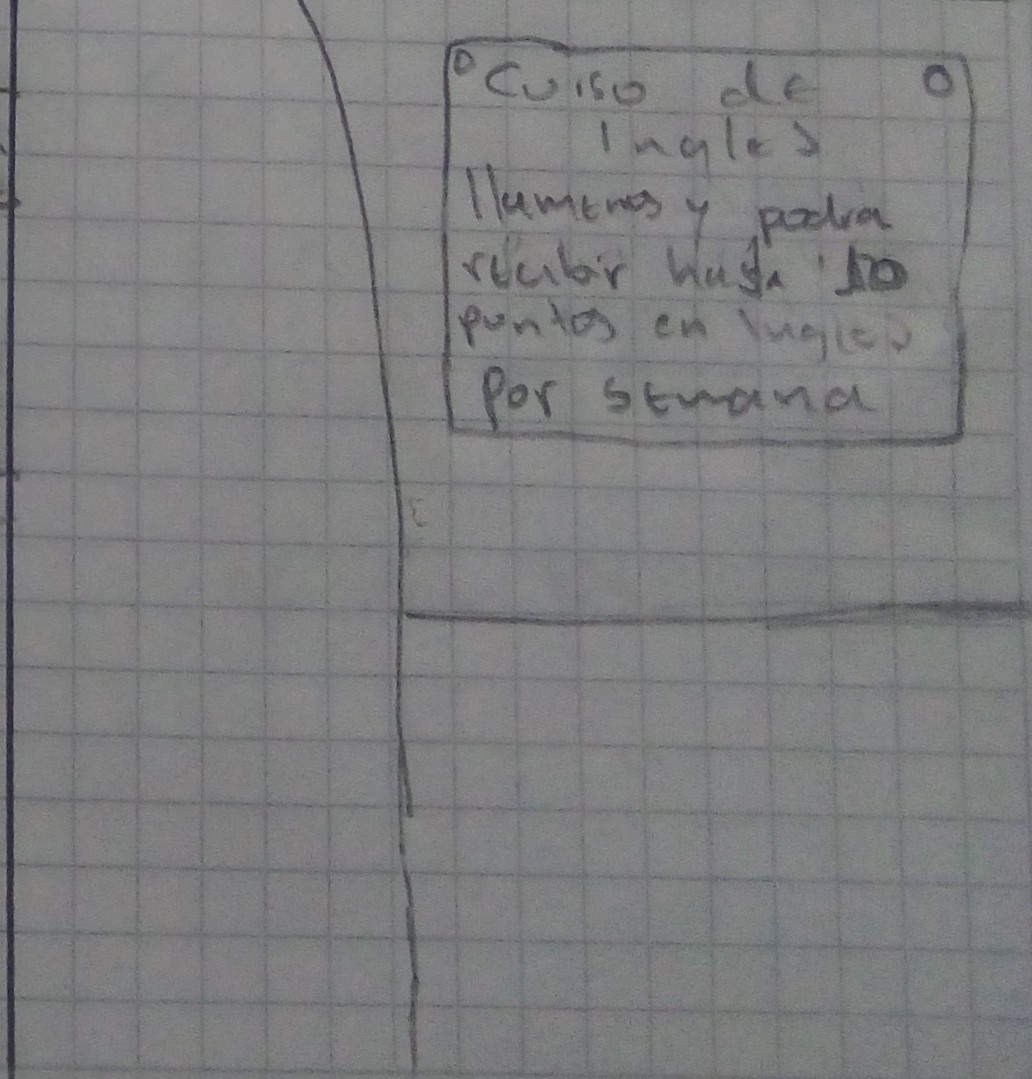 Curso de
Ingles
llamenos y podra
recibir hasta 10
puntos en Ingles
Por semana